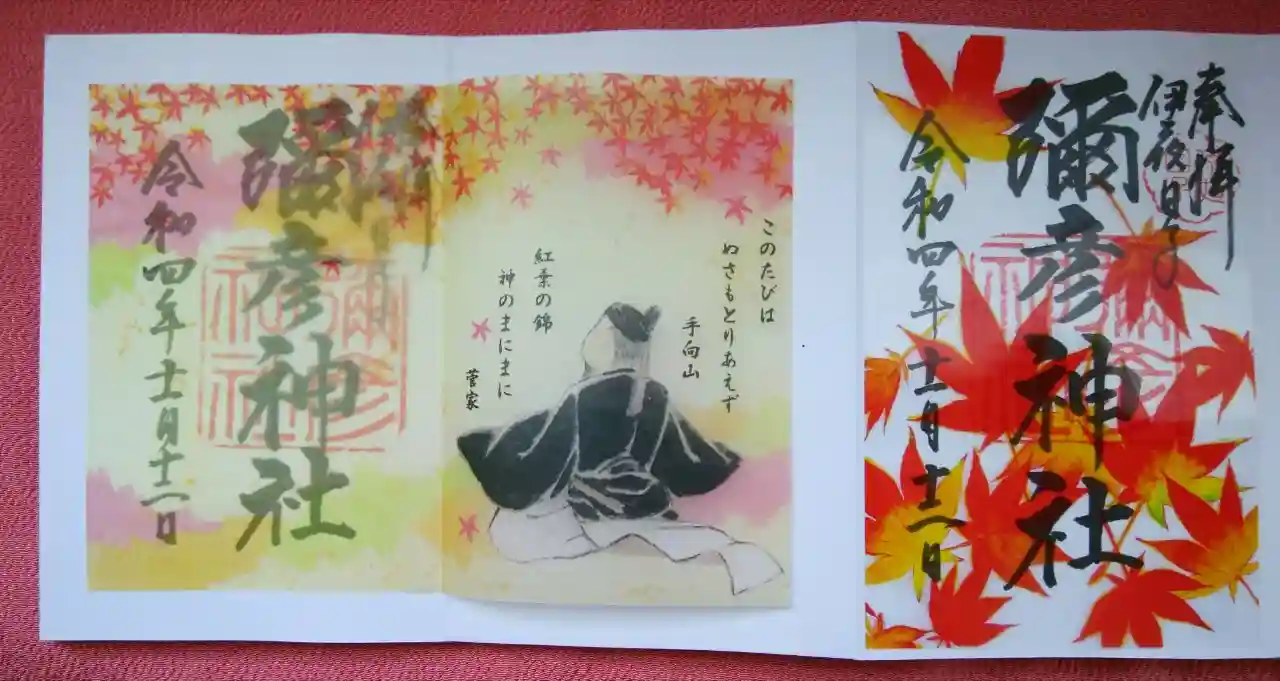 奉拝
伊夜日子
彌彦神社
令和四年十一月十二日
このたびは
ぬさもとりあえず
手向山
紅葉の錦
神のまにまに
菅家
彌彦神社
令和四年十一月十二日